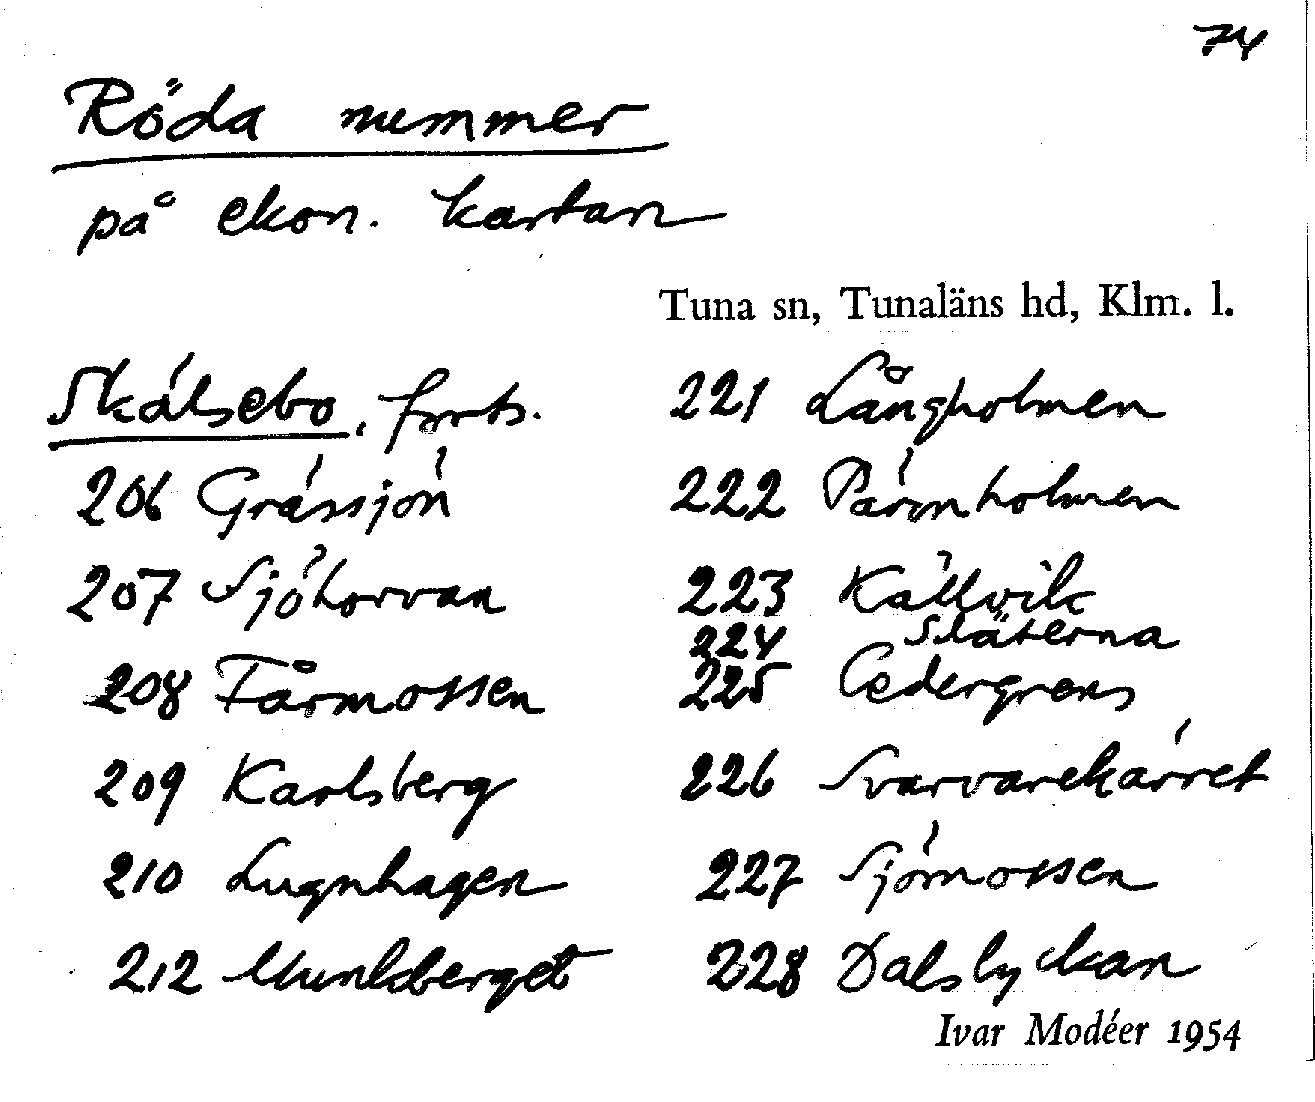 74
Röda nummer
på ekon. kartan
Tuna sn, Tunaläns hd, Klm. l.
Skälsebo, forts.
206 Grässjön
207 Sjöhorvan
208 Tårmossen
209 Karlsberg
210 Lugnhagen
212 Munksberget
221 Långholmen
222 Pärmholmen
223 Källvik
224 Släterna
225 Cedergrens
226 Svarvarekärret
227 Sjömossen
228 Dalslyckan
Ivar Modéer 1954